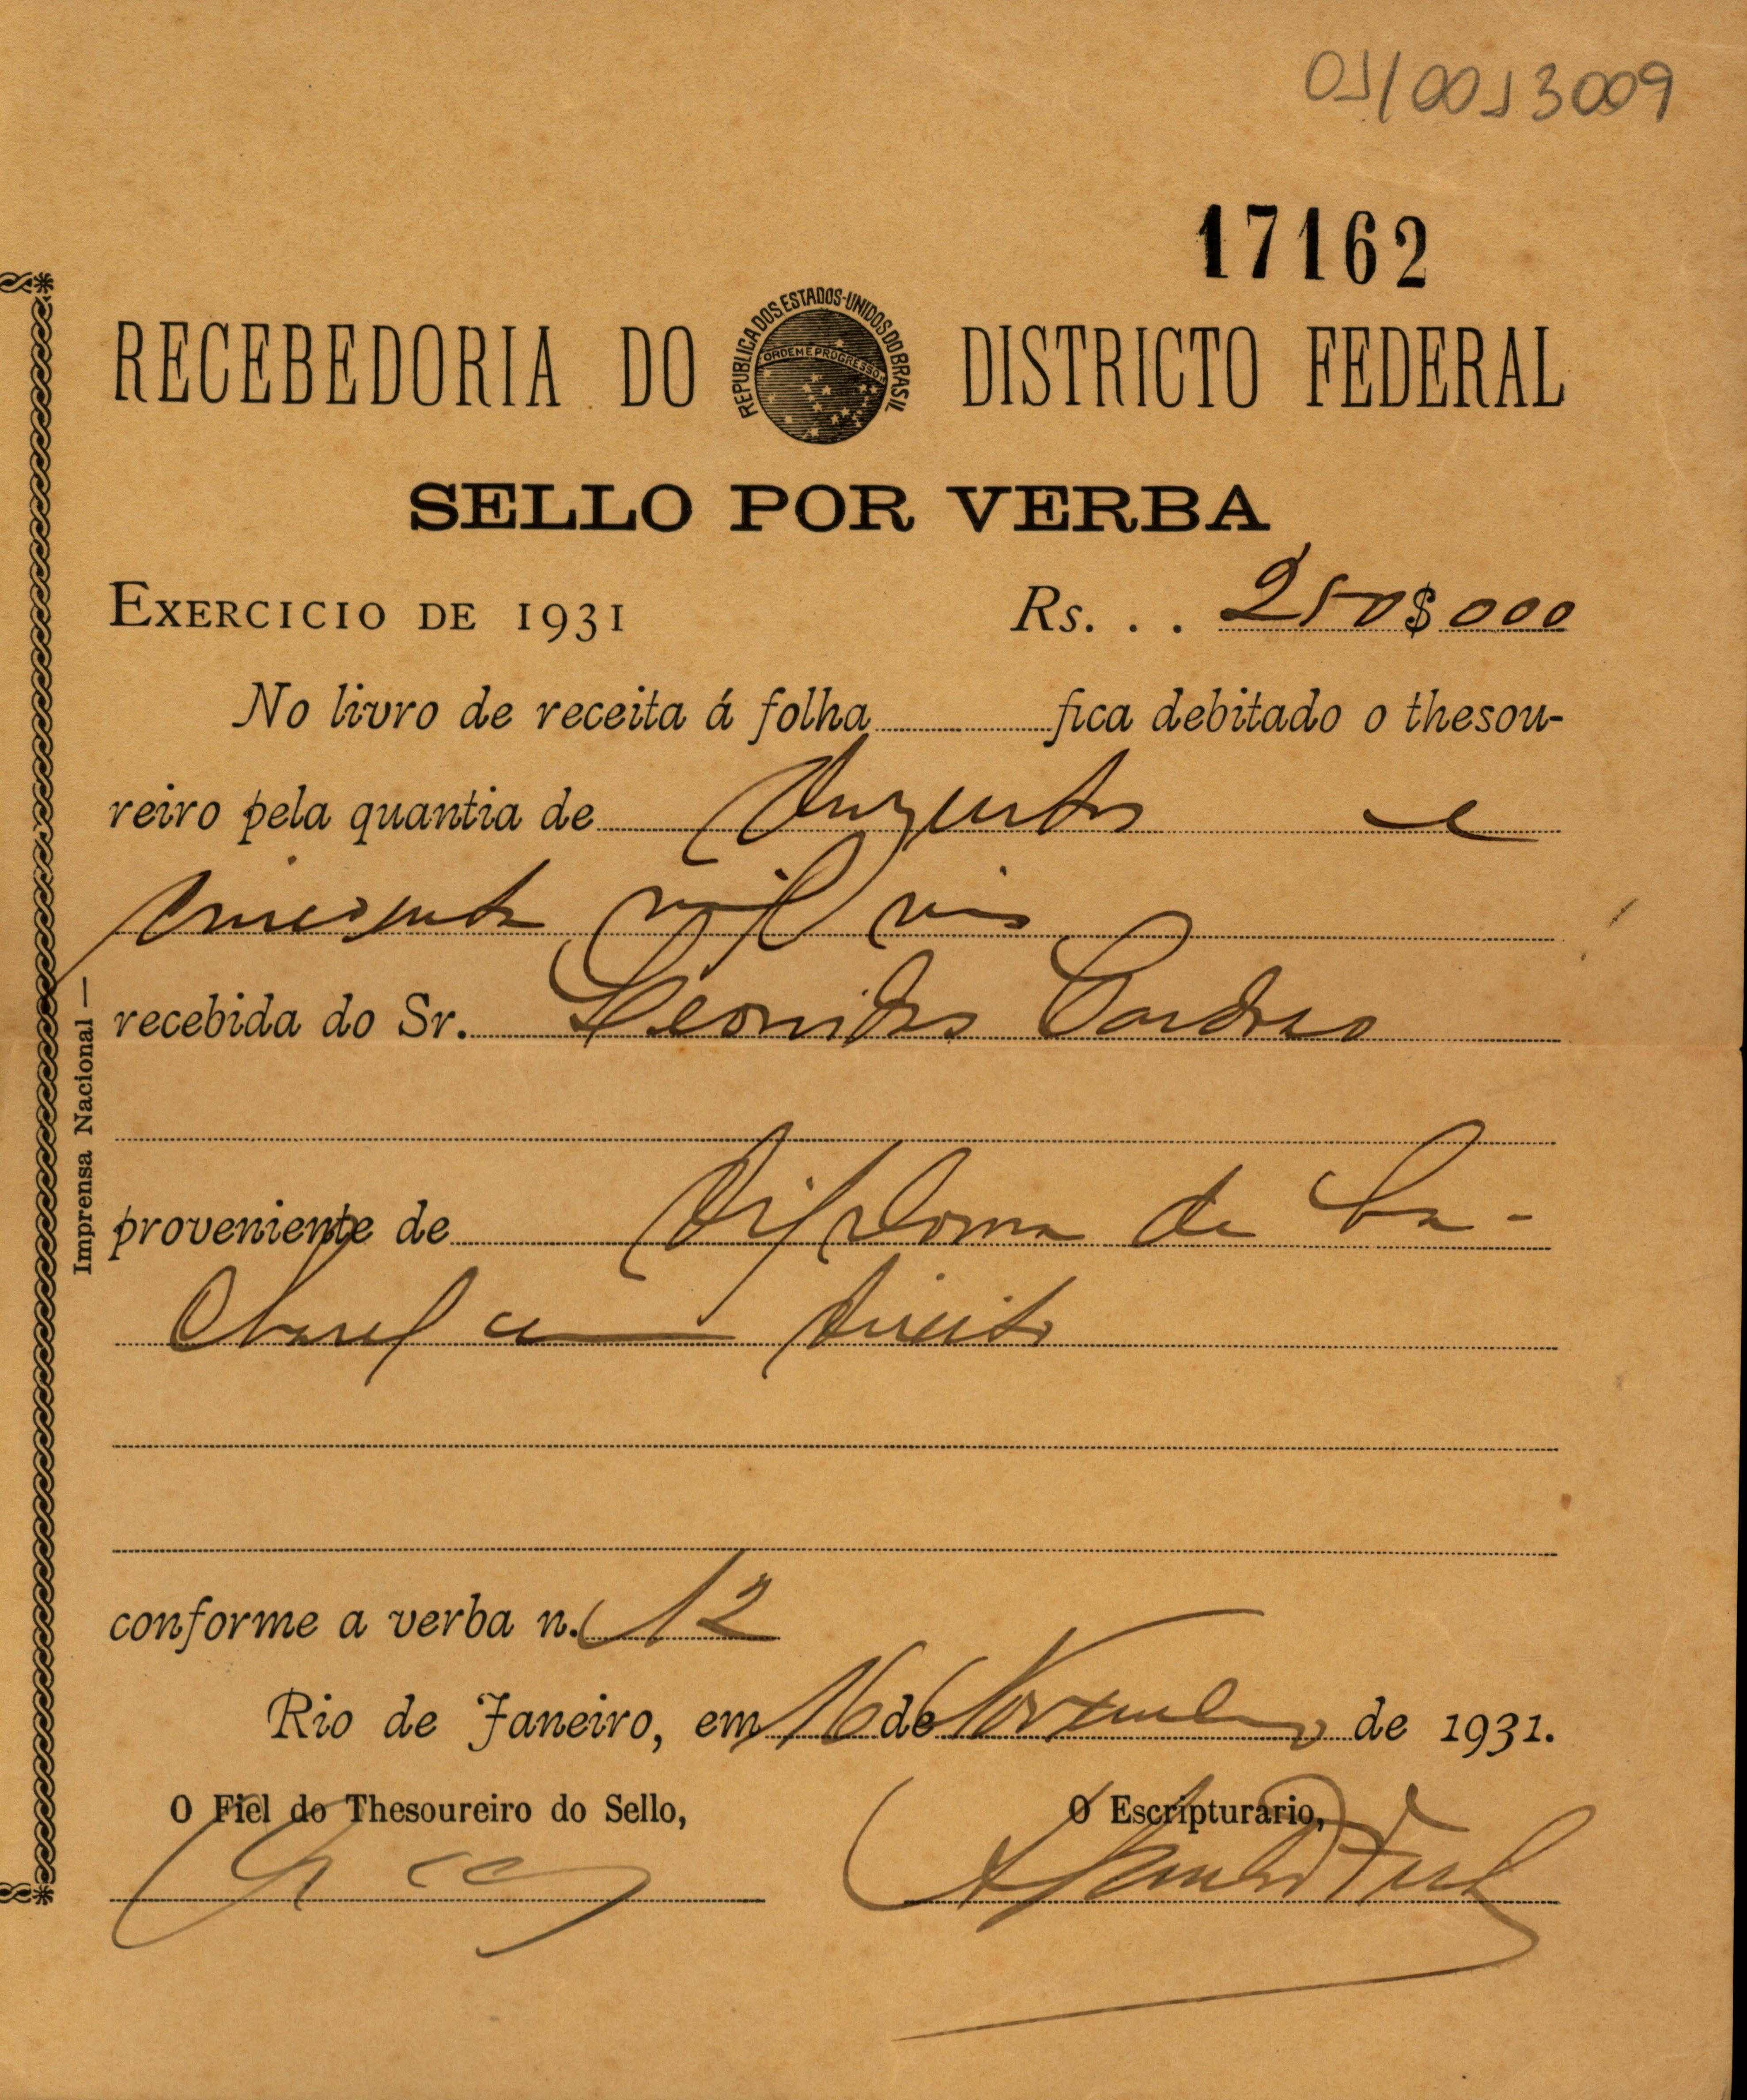 01/0013009
17162
RECEBEDORIA DO DISTRICTO FEDERAL
REPUBLICA DOS ESTADOS-UNIDOS DO BRASIL
ORDEM E PROGRESSO
SELLO POR VERBA
EXERCICIO DE 1931 Rs. . . 250$000
No livro de receita á folha fica debitado o thesou-
reiro pela quantia de duzentos e
cincoenta mil reis
recebida do Sr. Leonidas Cardoso
proveniente de Diploma de ba-
charel em direito
conforme a verba n. 12
Rio de Janeiro, em 16 de Novembro de 1931.
O Fiel do Thesoureiro do Sello, O Escripturario,
Imprensa Nacional —